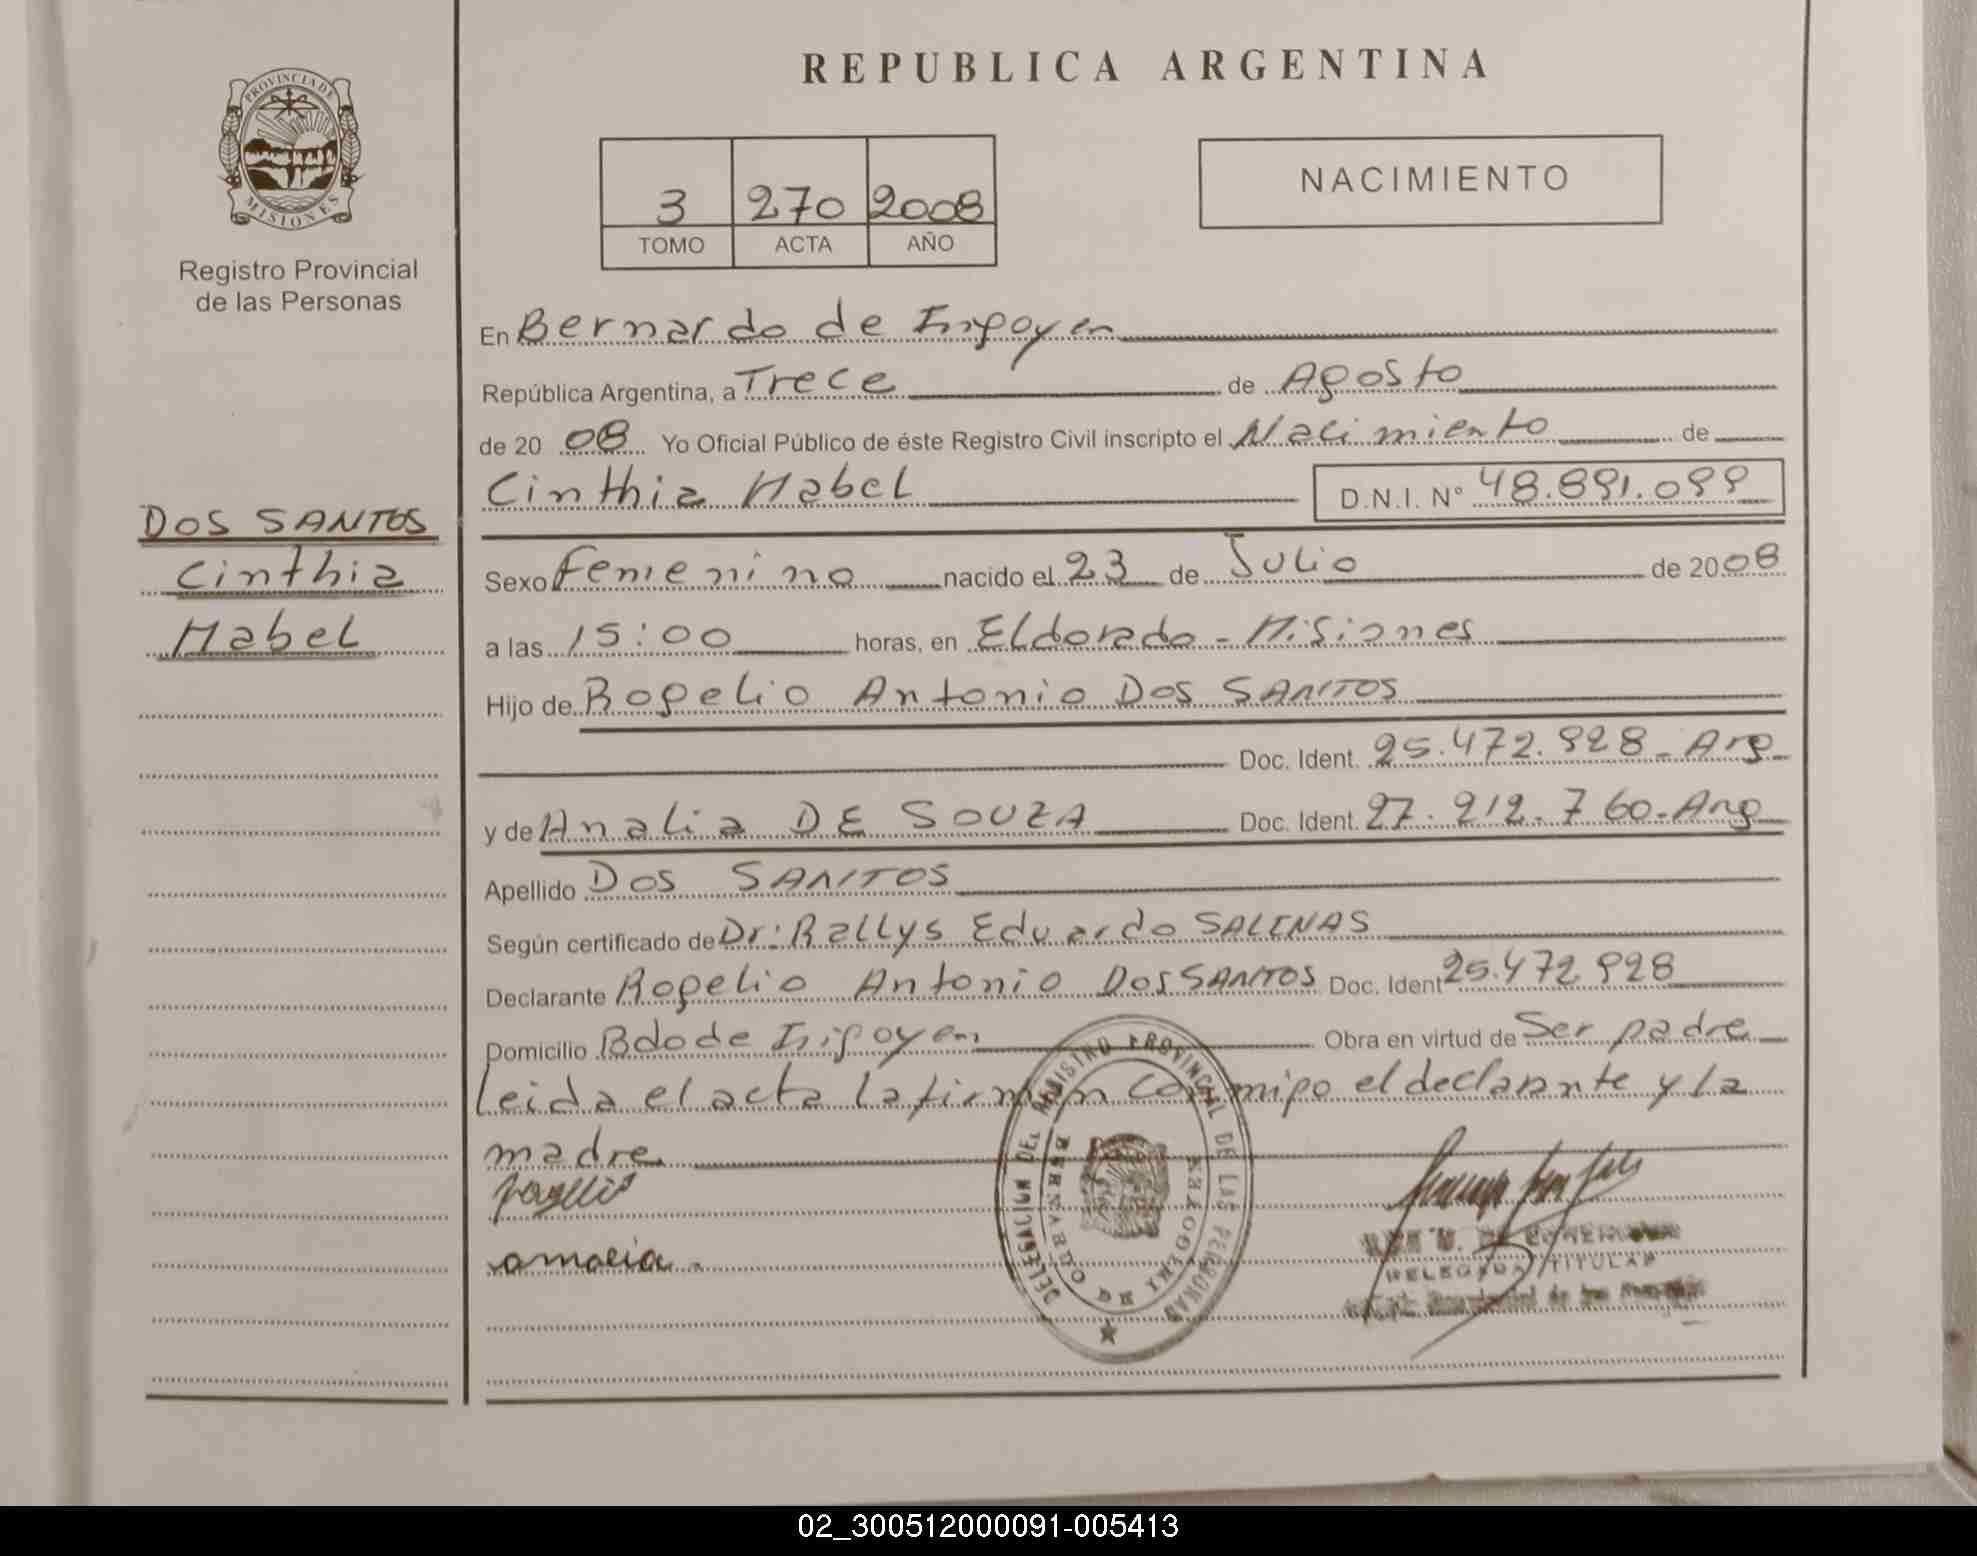 REPUBLICA ARGENTINA
PROVINCIA DE MISIONES
Registro Provincial
de las Personas
3 270 2008
TOMO ACTA AÑO
NACIMIENTO
DOS SANTOS
Cinthia
Mabel
En Bernardo de Irigoyen
República Argentina, a Trece de Agosto
de 20 08 Yo Oficial Público de éste Registro Civil inscripto el Nacimiento de
Cinthia Mabel D.N.I. N° 48.891.099
Sexo Femenino nacido el 23 de Julio de 2008
a las 15:00 horas, en Eldorado - Misiones
Hijo de Rogelio Antonio DOS SANTOS
Doc. Ident. 25.472.928 - Arg
y de Analia DE SOUZA Doc. Ident. 27.212.760 - Arg
Apellido DOS SANTOS
Según certificado de Dr: Rallys Eduardo SALINAS
Declarante Rogelio Antonio DOS SANTOS Doc. Ident 25.472.928
Domicilio Bdo de Irigoyen Obra en virtud de Ser padre
Leida el acta la firman conmigo el declarante y la
madre
DELEGACION DEL REGISTRO PROVINCIAL DE LAS PERSONAS
BERNARDO DE IRIGOYEN
DELEGADA TITULAR
02_300512000091-005413